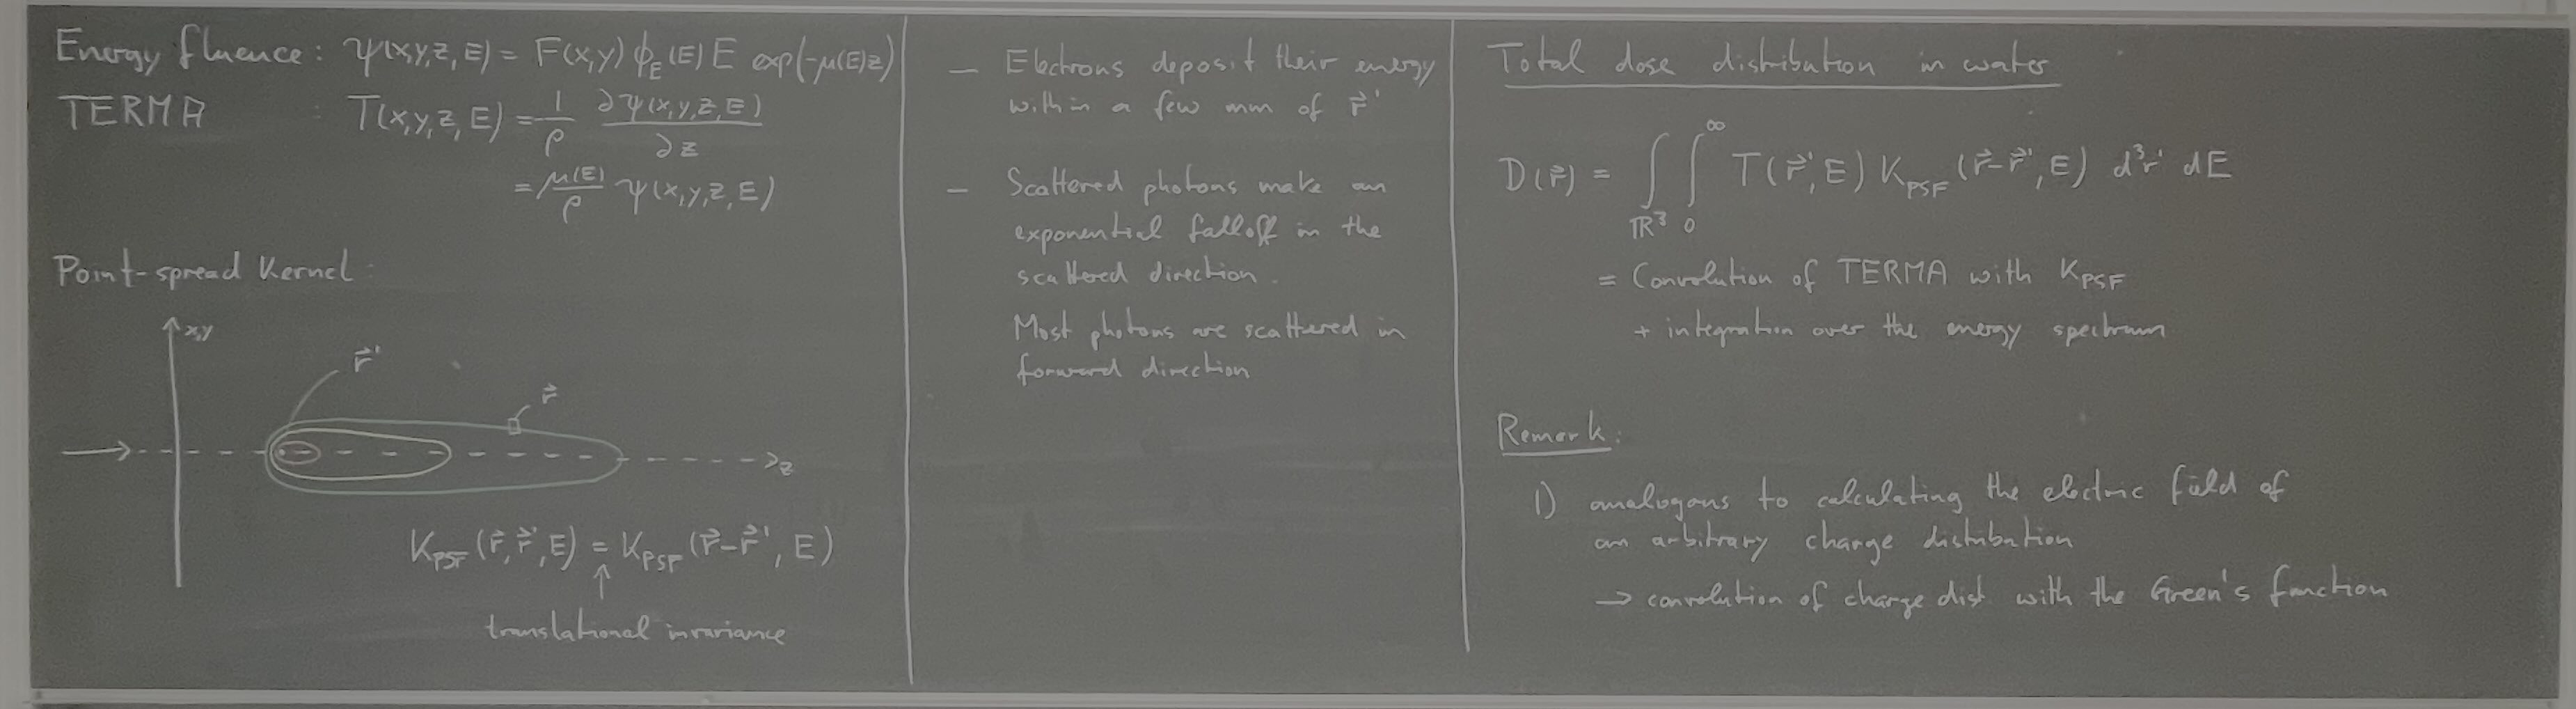 Energy fluence: ψ(x,y,z,E) = F(x,y) ϕ_E(E) E exp(-μ(E)z)
TERMA : T(x,y,z,E) = 1/ρ ∂ψ(x,y,z,E)/∂z
= μ(E)/ρ ψ(x,y,z,E)
Point-spread Kernel:
x,y
r⃗'
r⃗
z
K_PSF(r⃗,r⃗',E) = K_PSF(r⃗-r⃗',E)
↑
translational invariance
– Electrons deposit their energy
within a few mm of r⃗'
– Scattered photons make an
exponential falloff in the
scattered direction.
Most photons are scattered in
forward direction
Total dose distribution in water
D(r⃗) = ∫_ℝ³ ∫_0^∞ T(r⃗',E) K_PSF(r⃗-r⃗',E) d³r' dE
= Convolution of TERMA with K_PSF
+ integration over the energy spectrum
Remark:
1) analogous to calculating the electric field of
an arbitrary charge distribution
→ convolution of charge dist with the Green's function